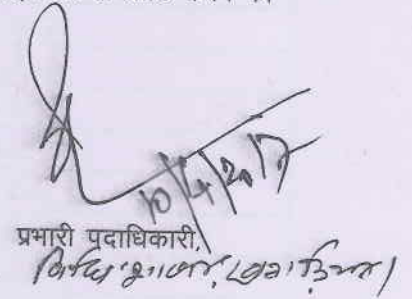 10/4/2017
प्रभारी पदाधिकारी,
विधि शाखा, खगड़िया।